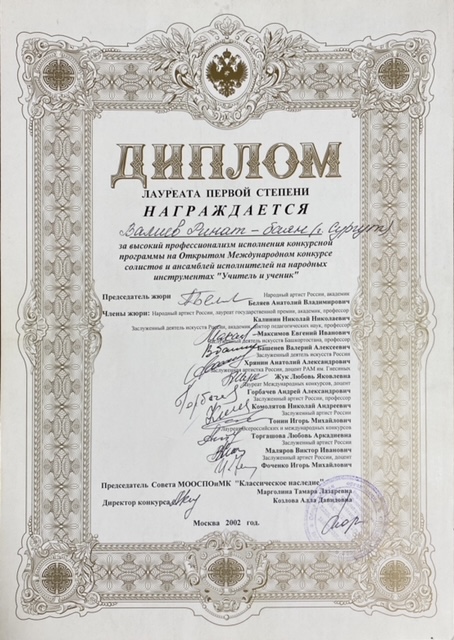 ДИПЛОМ
ЛАУРЕАТА ПЕРВОЙ СТЕПЕНИ
НАГРАЖДАЕТСЯ
Валиев Ринат - баян (г. Сургут)
за высокий профессионализм исполнения конкурсной
программы на Открытом Международном конкурсе
солистов и ансамблей исполнителей на народных
инструментах "Учитель и ученик"
Народный артист России, академик
Председатель жюри Беляев Анатолий Владимирович
Члены жюри: Народный артист России, лауреат государственной премии, академик, профессор
Калинин Николай Николаевич
Заслуженный деятель искусств России, академик, доктор педагогических наук, профессор
Максимов Евгений Иванович
деятель искусств Башкортостана, профессор
Башенев Валерий Алексеевич
Заслуженный деятель искусств России
Хрянин Анатолий Александрович
артистка России, доцент РАМ им. Гнесиных
Жук Любовь Яковлевна
Лауреат Международных конкурсов, доцент
Горбачев Андрей Александрович
Заслуженный артист России, профессор
Комолятов Николай Андреевич
Заслуженный артист России
Тонин Игорь Михайлович
Лауреат Всероссийских и международных конкурсов
Торгашова Любовь Аркадиевна
Заслуженный артист России
Маляров Виктор Иванович
Заслуженный артист России, доцент
Фоченко Игорь Михайлович
Председатель Совета МООСПОиМК "Классическое наследие"
Марголина Тамара Лазаревна
Директор конкурса Козлова Алла Давидовна
Москва 2002 год.